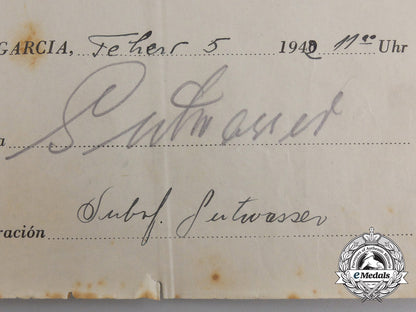 GARCIA, Feherr 5 1942 11⁰⁰ Uhr
a Gutwasser
ración Subof. Gutwasser
eMedals